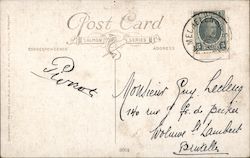 Post Card
SALMON SERIES
CORRESPONDENCE
ADDRESS
Monsieur Guy Leclercq
140 rue J. fr. de Becker
Woluwe St Lambert
Bruxelles